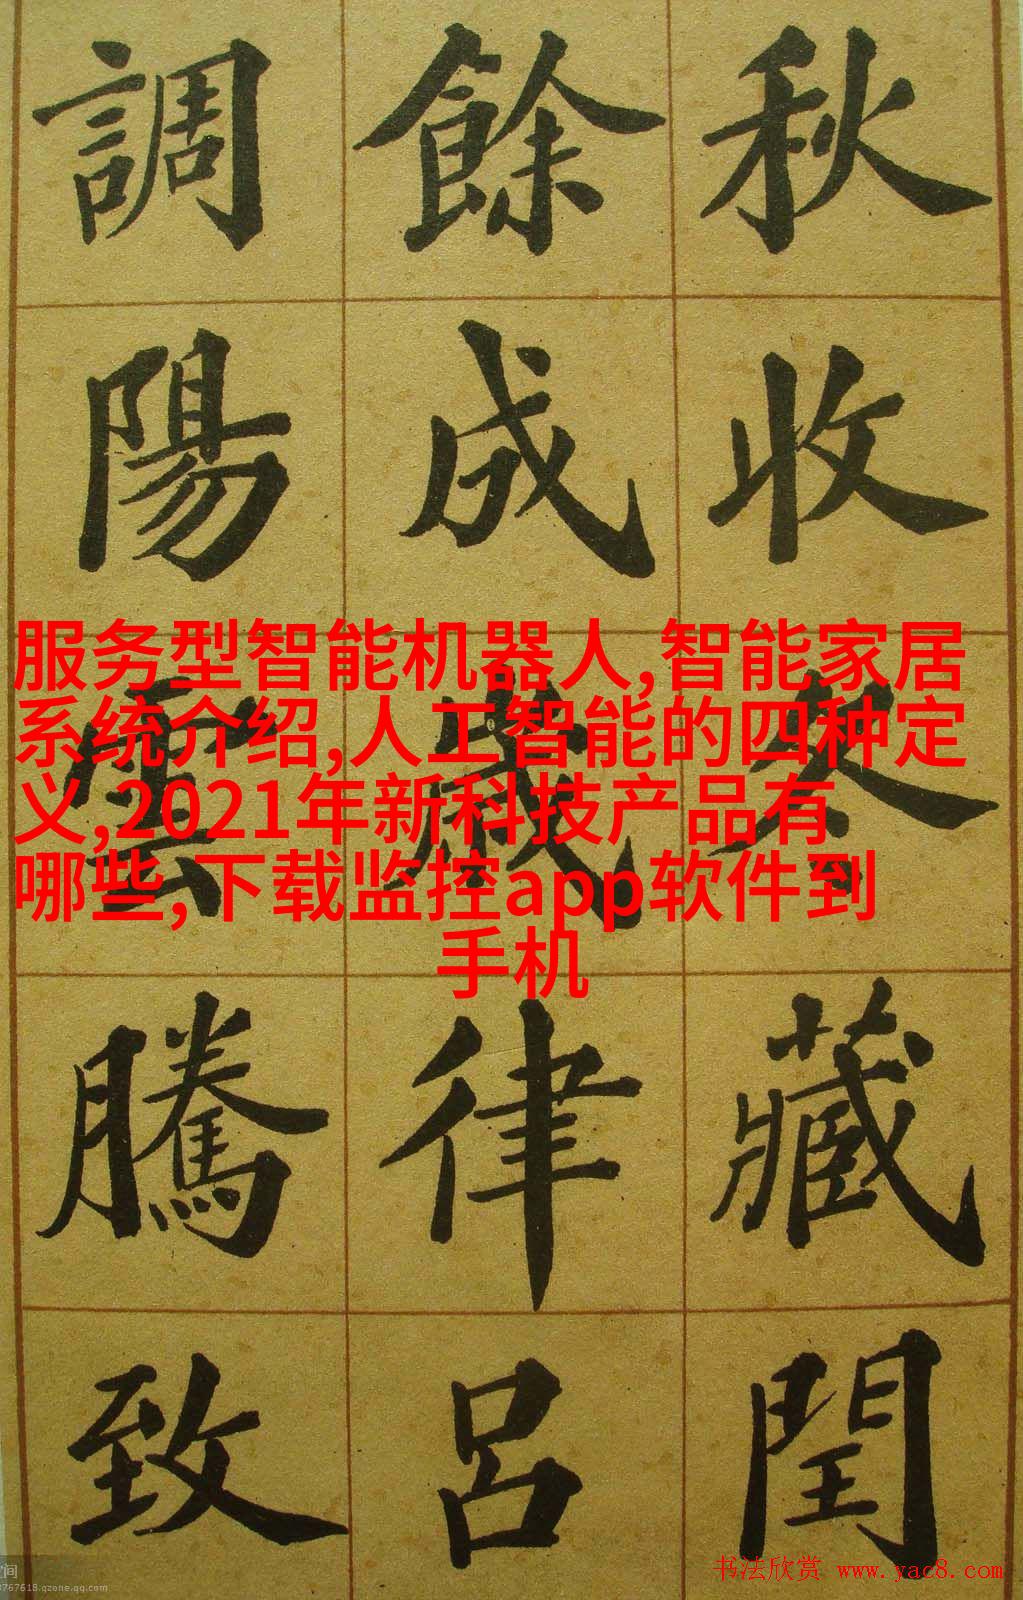 秋收冬藏閏
餘成歲律呂
調陽雲騰致
服务型智能机器人,智能家居
系统介绍,人工智能的四种定
义,2021年新科技产品有
哪些,下载监控app软件到
手机
书法欣赏 www.yac8.com
间
767618.qzone.qq.com